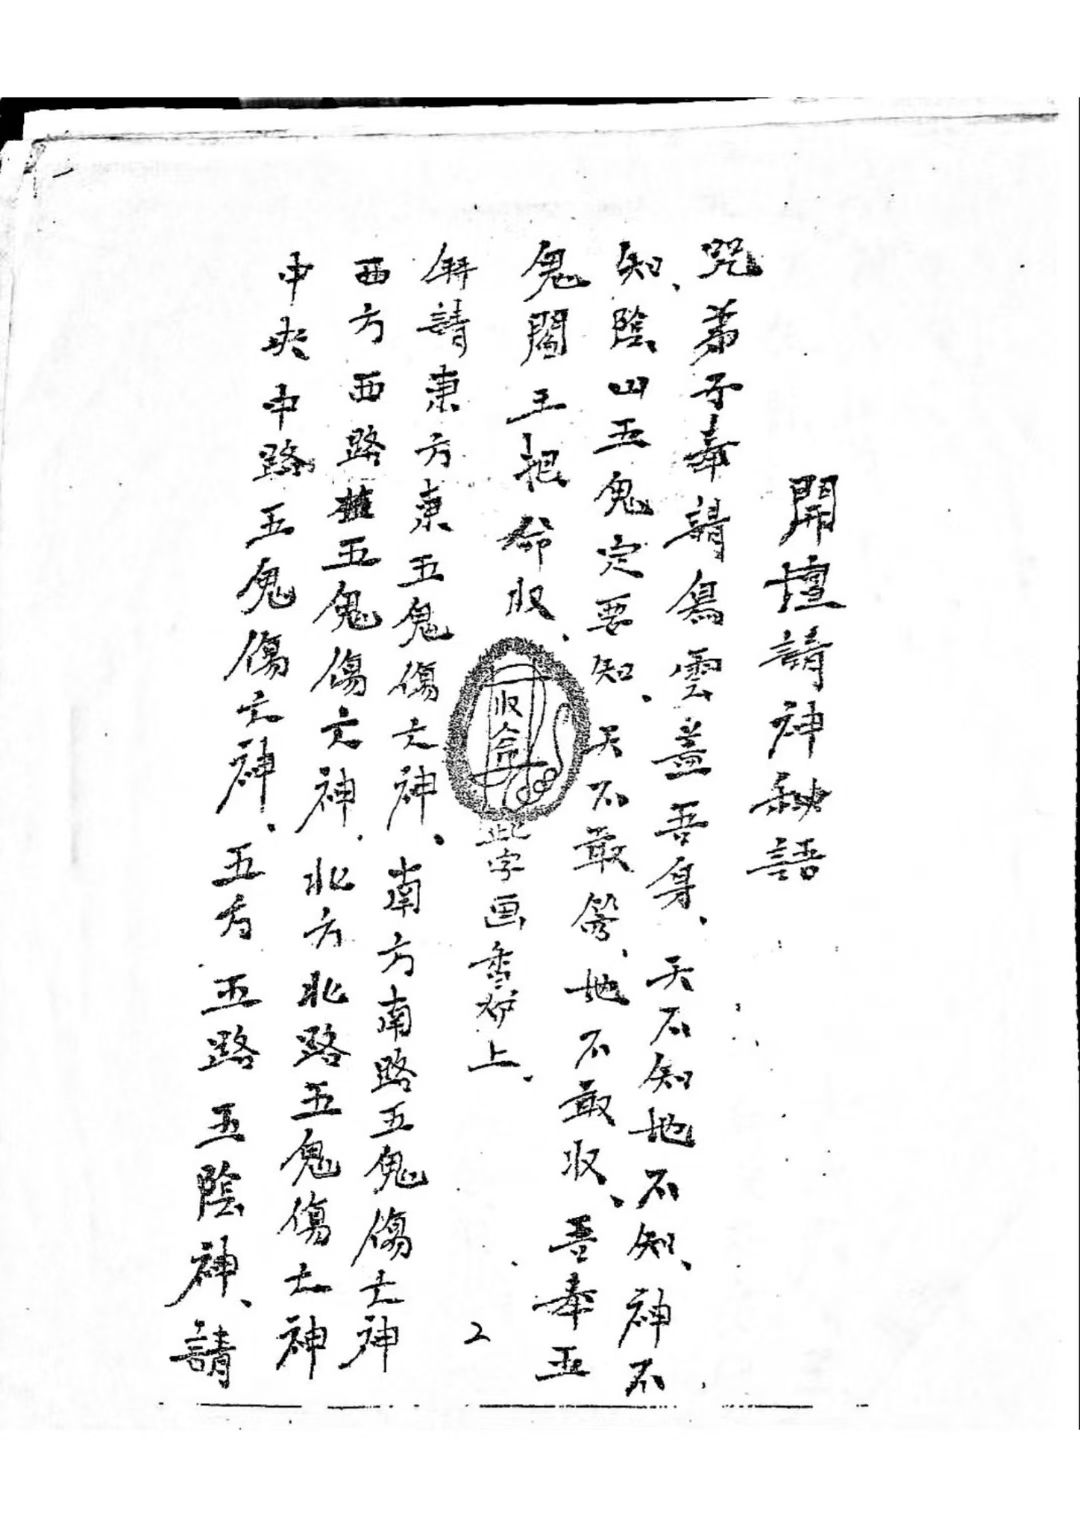 開壇請神秘語
咒弟子奉請烏雲蓋吾身、天不知地不知、神不
知、陰山五鬼定要知、天不敢答、地不敢收、吾奉五
鬼閻王把命收、收命此字画香炉上、
拜請東方東五鬼傷亡神、南方南路五鬼傷亡神
西方西路五鬼傷亡神、北方北路五鬼傷亡神
中央中路五鬼傷亡神、五方五路五陰神、請
2